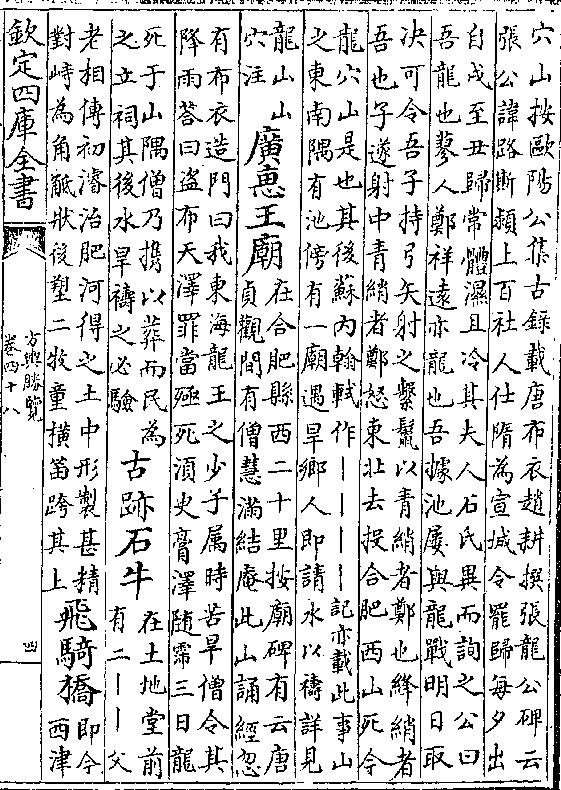 穴山按歐陽公集古録載唐布衣趙耕撰張龍公碑云
張公諱路斯潁上百社人仕隋為宣城令罷歸每夕出
自戍至丑歸常體濕且冷其夫人石氏異而詢之公曰
吾龍也蓼人鄭祥遠亦龍也吾據池屢與龍戰明日取
决可令吾子持弓矢射之繫鬛以青綃者鄭也絳綃者
吾也子遂射中青綃者鄭怒東北去投合肥西山死今
龍穴山是也其後蘇内翰軾作丨丨丨丨記亦載此事山
之東南隅有池傍有一廟遇旱鄉人即請水以禱詳見
龍山山
穴注
廣惠王廟
在合肥縣西二十里按廟碑有云唐
貞觀間有僧慧滿結庵此山誦經忽
有布衣造門曰我東海龍王之少子属時苦旱僧令其
降雨荅曰盗布天澤罪當殛死湏臾膏澤随霈三日龍
死于山隅僧乃携以葬而民為
之立祠其後水旱禱之必驗
古跡石牛
在土地堂前
有二丨丨父
老相傳初濬治肥河得之土中形製甚精
對峙為角觝狀後塑二牧童横笛跨其上
飛騎橋
即今
西津
欽定四庫全書
方輿勝覽
卷四十八
四